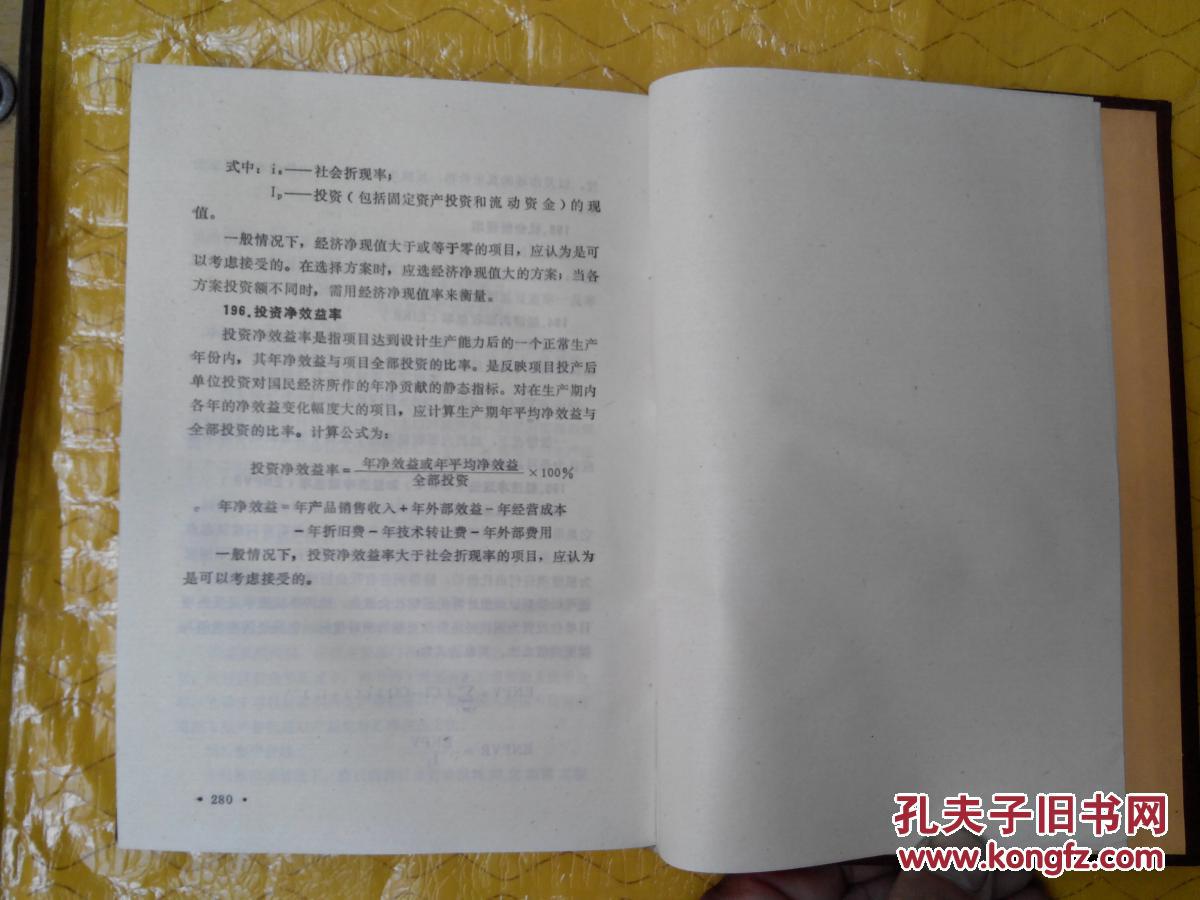 式中：iₛ——社会折现率；
Iₚ——投资（包括固定资产投资和流动资金）的现
值。
一般情况下，经济净现值大于或等于零的项目，应认为是可
以考虑接受的。在选择方案时，应选经济净现值大的方案；当各
方案投资额不同时，需用经济净现值率来衡量。
196.投资净效益率
投资净效益率是指项目达到设计生产能力后的一个正常生产
年份内，其年净效益与项目全部投资的比率。是反映项目投产后
单位投资对国民经济所作的年净贡献的静态指标。对在生产期内
各年的净效益变化幅度大的项目，应计算生产期年平均净效益与
全部投资的比率。计算公式为：
投资净效益率=年净效益或年平均净效益/全部投资×100%
年净效益=年产品销售收入+年外部效益-年经营成本
-年折旧费-年技术转让费-年外部费用
一般情况下，投资净效益率大于社会折现率的项目，应认为
是可以考虑接受的。
• 280 •
孔夫子旧书网
www.kongfz.com